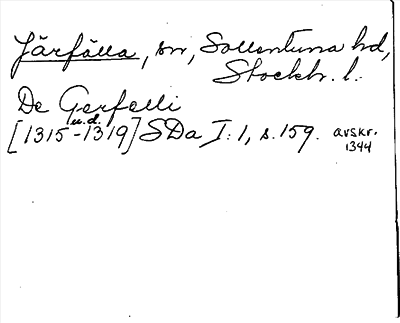 Järfälla, sn, Sollentuna hd,
Stockh. l.
De Gerfelli
u.d.
[1315-1319] SDa I: 1, s. 159. avskr.
1344